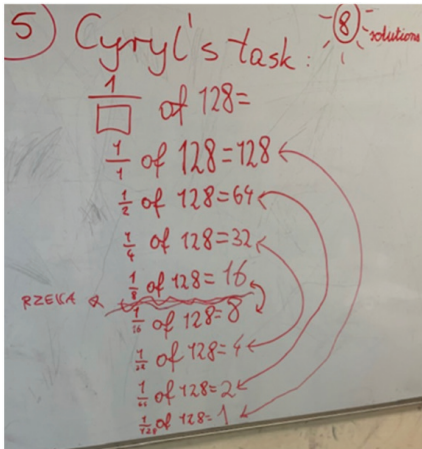 5) Cyryl's task: 8 solutions
1/□ of 128=
1/1 of 128=128
1/2 of 128=64
1/4 of 128=32
1/8 of 128=16
RZEKA
1/16 of 128=8
1/32 of 128=4
1/64 of 128=2
1/128 of 128=1